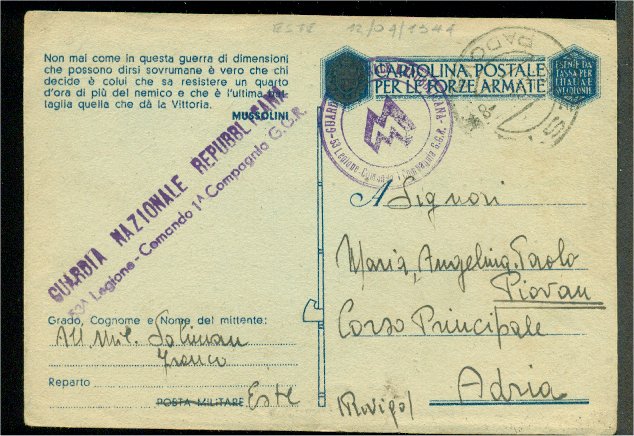 ESTE 12/09/1944
Non mai come in questa guerra di dimensioni
che possono dirsi sovrumane è vero che chi
decide è colui che sa resistere un quarto
d'ora di più del nemico e che è l'ultima bat-
taglia quella che dà la Vittoria.
MUSSOLINI
GUARDIA NAZIONALE REPUBBLICANA
53ª Legione - Comando 1ª Compagnia G.G.R.
CARTOLINA POSTALE
PER LE FORZE ARMATE
ESENTE DA
TASSA PER
L'ITALIA E
SUE COLONIE
PADO
A Signori
Maria, Angelina, Paolo
Piovan
Corso Principale
Adria
(Rovigo)
Grado, Cognome e Nome del mittente:
All. mil.
Franco
Reparto
POSTA MILITARE Este